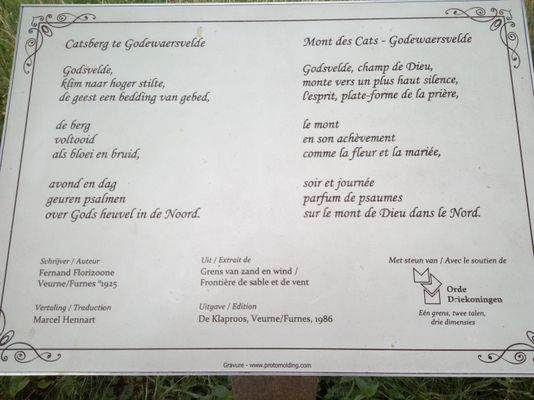 Catsberg te Godewaersvelde
Godsvelde,
klim naar hoger stilte,
de geest een bedding van gebed,
de berg
voltooid
als bloei en bruid,
avond en dag
geuren psalmen
over Gods heuvel in de Noord.
Mont des Cats - Godewaersvelde
Godsvelde, champ de Dieu,
monte vers un plus haut silence,
l'esprit, plate-forme de la prière,
le mont
en son achèvement
comme la fleur et la mariée,
soir et journée
parfum de psaumes
sur le mont de Dieu dans le Nord.
Schrijver / Auteur
Fernand Florizoone
Veurne/Furnes °1925
Vertaling / Traduction
Marcel Hennart
Uit / Extrait de
Grens van zand en wind /
Frontière de sable et de vent
Uitgave / Edition
De Klaproos, Veurne/Furnes, 1986
Met steun van / Avec le soutien de
Orde
Driekoningen
Eén grens, twee talen,
drie dimensies
Gravure - www.protomolding.com